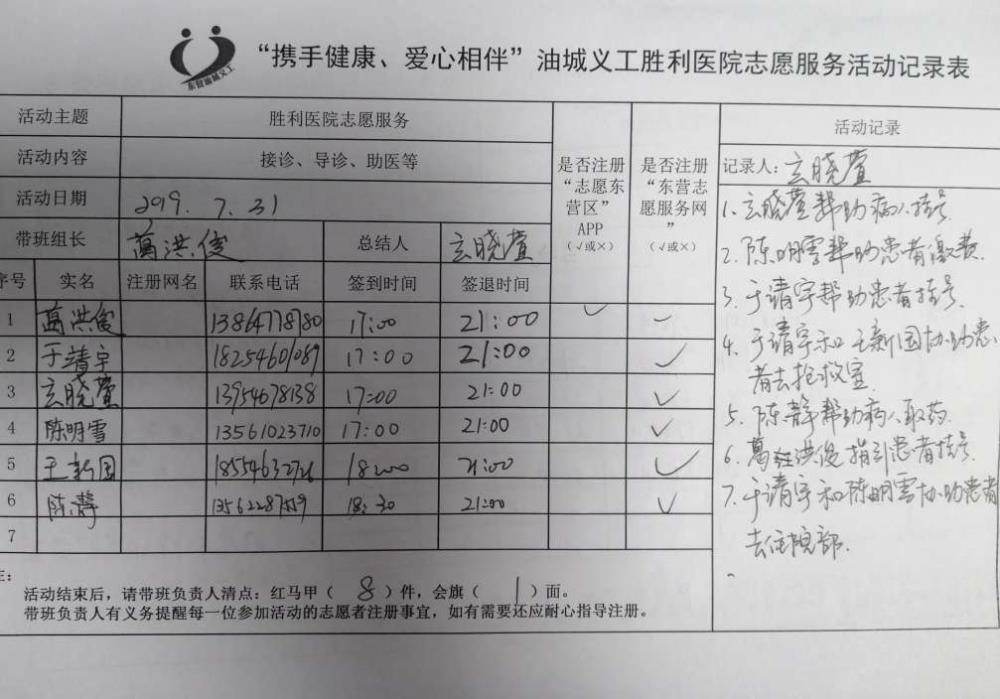 东营油城义工
“携手健康、爱心相伴”油城义工胜利医院志愿服务活动记录表
活动主题 胜利医院志愿服务
活动内容 接诊、导诊、助医等
活动日期 2019. 7. 31
带班组长 葛洪俊 总结人 玄晓萱
序号 实名 注册网名 联系电话 签到时间 签退时间
是否注册
“志愿东
营区”
APP
(√或×)
是否注册
“东营志
愿服务网
”
(√或×)
1 葛洪俊 13864778780 17:00 21:00 ✓ –
2 于靖宇 18254601089 17:00 21:00 ✓
3 玄晓萱 13954678138 17:00 21:00 ✓
4 陈明雪 13561023710 17:00 21:00 ✓
5 王新国 18:00 21:00 ✓
6 陈静 18:30 21:00 ✓
7
活动结束后，请带班负责人清点：红马甲（ 8 ）件，会旗（ 1 ）面。
带班负责人有义务提醒每一位参加活动的志愿者注册事宜，如有需要还应耐心指导注册。
活动记录
记录人：玄晓萱
1. 玄晓萱帮助病人挂号
2. 陈明雪帮助患者缴费.
3. 于请宇帮助患者挂号.
4. 于请宇和王新国协助患
者去抢救室.
5. 陈静帮助病人取药.
6. 葛洪俊指引患者挂号.
7. 于请宇和陈明雪协助患者
去住院部.